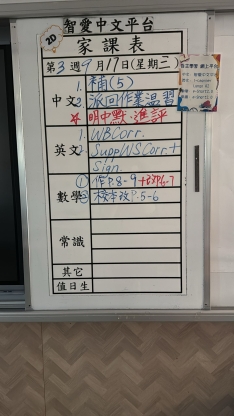 2D
智愛中文平台
家課表
第3週9月17日(星期三)
中文
1. 補(5)
2. 派回作業溫習
☆明中默、進評
英文
1. WBCorr.
2. SuppWSCorr+
Sign.
數學
① 作P.8-9
② P.5-6
常識
其它
值日生